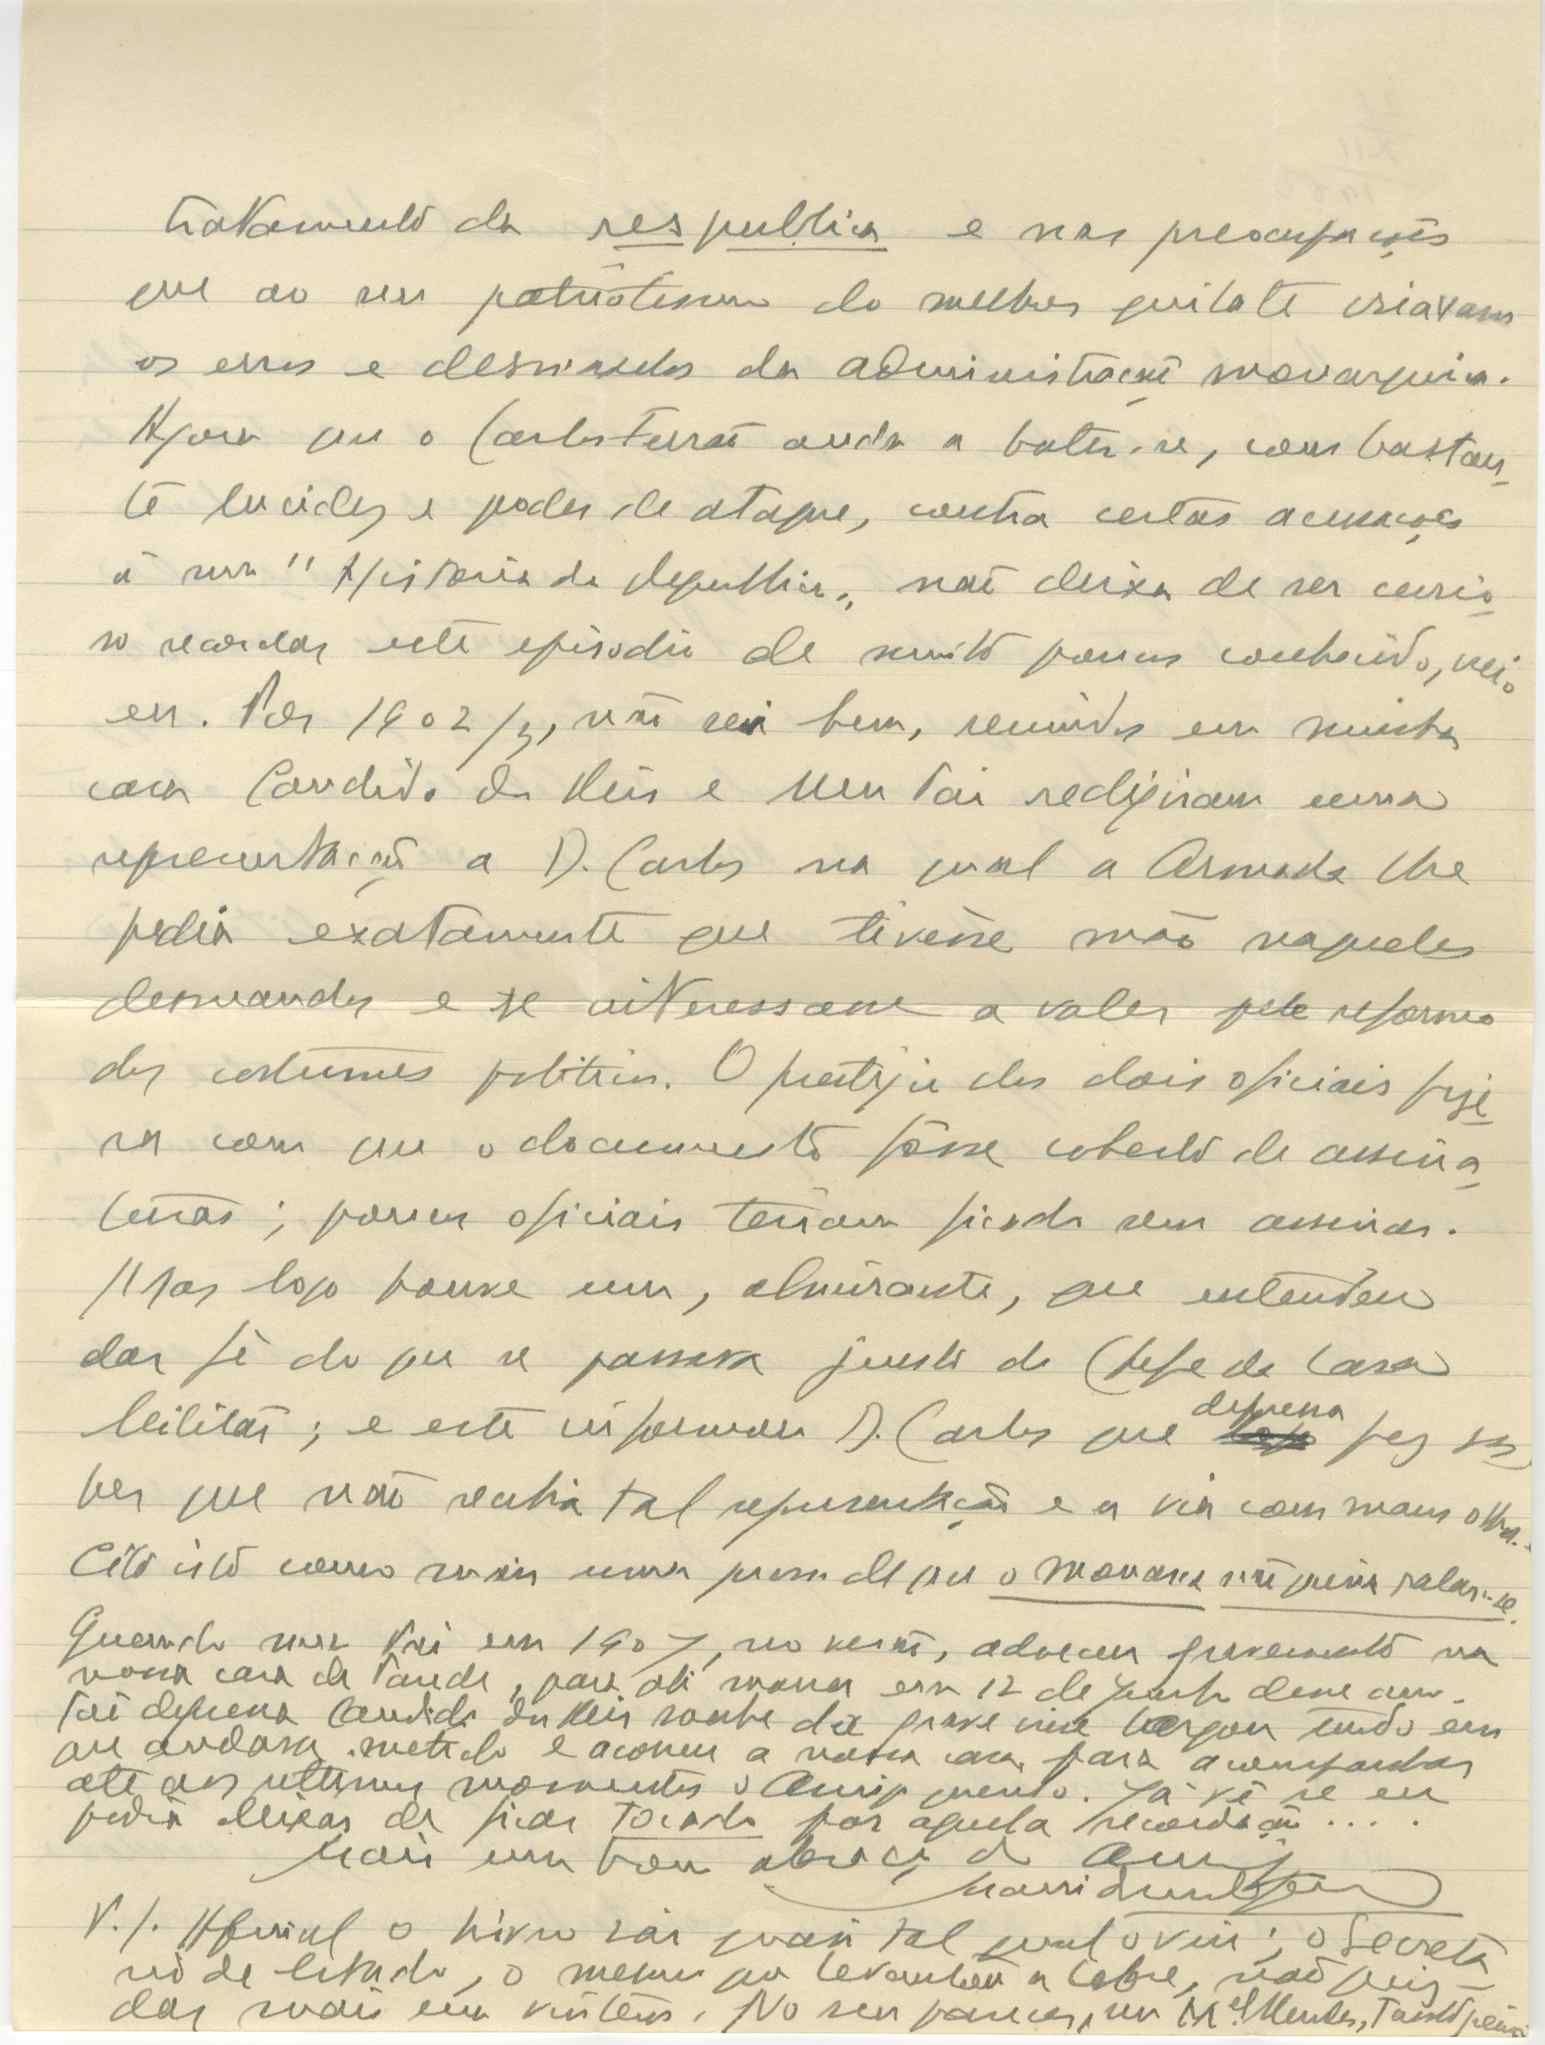 tratamento da res publica e nas preocupações
que ao seu patriotismo do melhor quilate criavam
os erros e desmandos da administração monarquica.
Agora que o Carlos Ferrão anda a bater-se, com bastan-
te lucidez e poder de ataque, contra certas acusações
á sua "Historia da Republica", não deixa de ser curio-
so recordar este episodio de muito poucos conhecido, creio
eu. Por 1902/3, não sei bem, reunidos em minha
casa Candido dos Reis e meu Pai redigiram uma
representação a D. Carlos na qual a Armada lhe
pedia exatamente que tivesse mão naqueles
desmandos e se interessasse a valer pela reforma
dos costumes politicos. O prestigio dos dois oficiais fize-
ra com que o documento fôsse coberto de assina-
turas; poucos oficiais teriam ficado sem assinar.
Mas logo houve um, almirante, que entendeu
dar fé do que se passava junto do Chefe da Casa
Militar; e este informou D. Carlos que depressa fez sa-
ber que não recebia tal representação e a via com maus olhos.
Cito isto como mais uma prova de que o monarca não queria ralar-se.
Quando meu Pai em 1907, no verão, adoeceu gravemente na
nossa casa de Parede, para ali morrer em 12 de Junho desse ano.
Tão depressa Candido dos Reis soube da grave crise largou tudo em
que andava metido e acorreu a nossa casa para acompanhar
até aos ultimos momentos o Amigo querido. Já vê se eu
podia deixar de ficar tocado por aquela recordação....
Mais um bom abraço do Amigo
P.S. Afinal o livro sai quasi tal qual o viu; o Secretá-
rio de Estado, o mesmo que levantou a lebre, não quiz
dar mais um vintem. No seu parecer, um Mel Mendes,